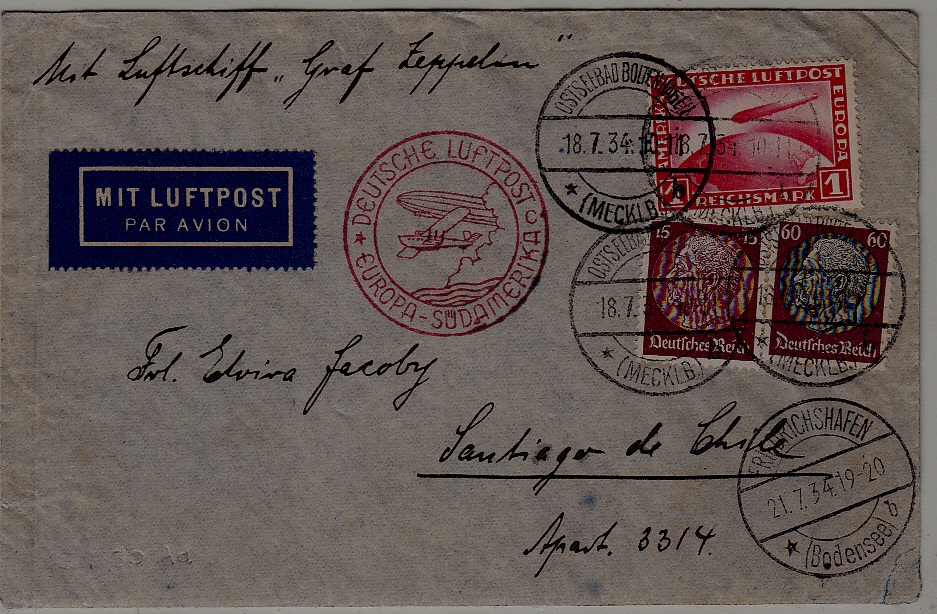 Mit Luftschiff „Graf Zeppelin"
MIT LUFTPOST
PAR AVION
DEUTSCHE LUFTPOST c
EUROPA-SÜDAMERIKA
OSTSEEBAD
18.7.34.
(MECKLB)
DEUTSCHE LUFTPOST
EUROPA
AMERIKA
1 REICHSMARK 1
15 15
Deutsches Reich
60 60
Deutsches Reich
OSTSEEBAD
18.7.
(MECKLB)
(MECKLB)
Frl. Elvira Jacoby
Santiago de Chile
Apart. 3314.
FRIEDRICHSHAFEN
21.7.34.19-20
(Bodensee) b